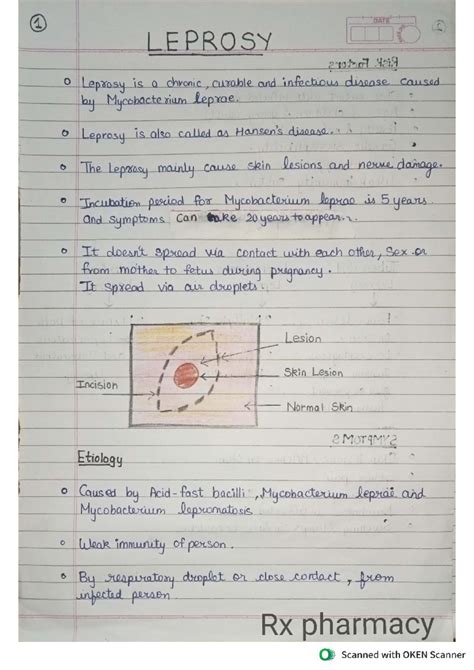 1
DATE
LEPROSY
Leprosy is a chronic, curable and infectious disease caused
by Mycobacterium leprae.
Leprosy is also called as Hansen's disease.
The Leprosy mainly cause skin lesions and nerve damage.
Incubation period for Mycobacterium leprae is 5 years
and symptoms can take 20 years to appear.
It doesn't spread via contact with each other, Sex or
from mother to fetus during pregnancy.
It spread via air droplets.
Lesion
Skin Lesion
Incision
Normal Skin
Etiology
Caused by Acid-fast bacilli, Mycobacterium leprae and
Mycobacterium lepromatosis
Weak immunity of person.
By respiratory droplet or close contact, from
infected person
Rx pharmacy
Scanned with OKEN Scanner